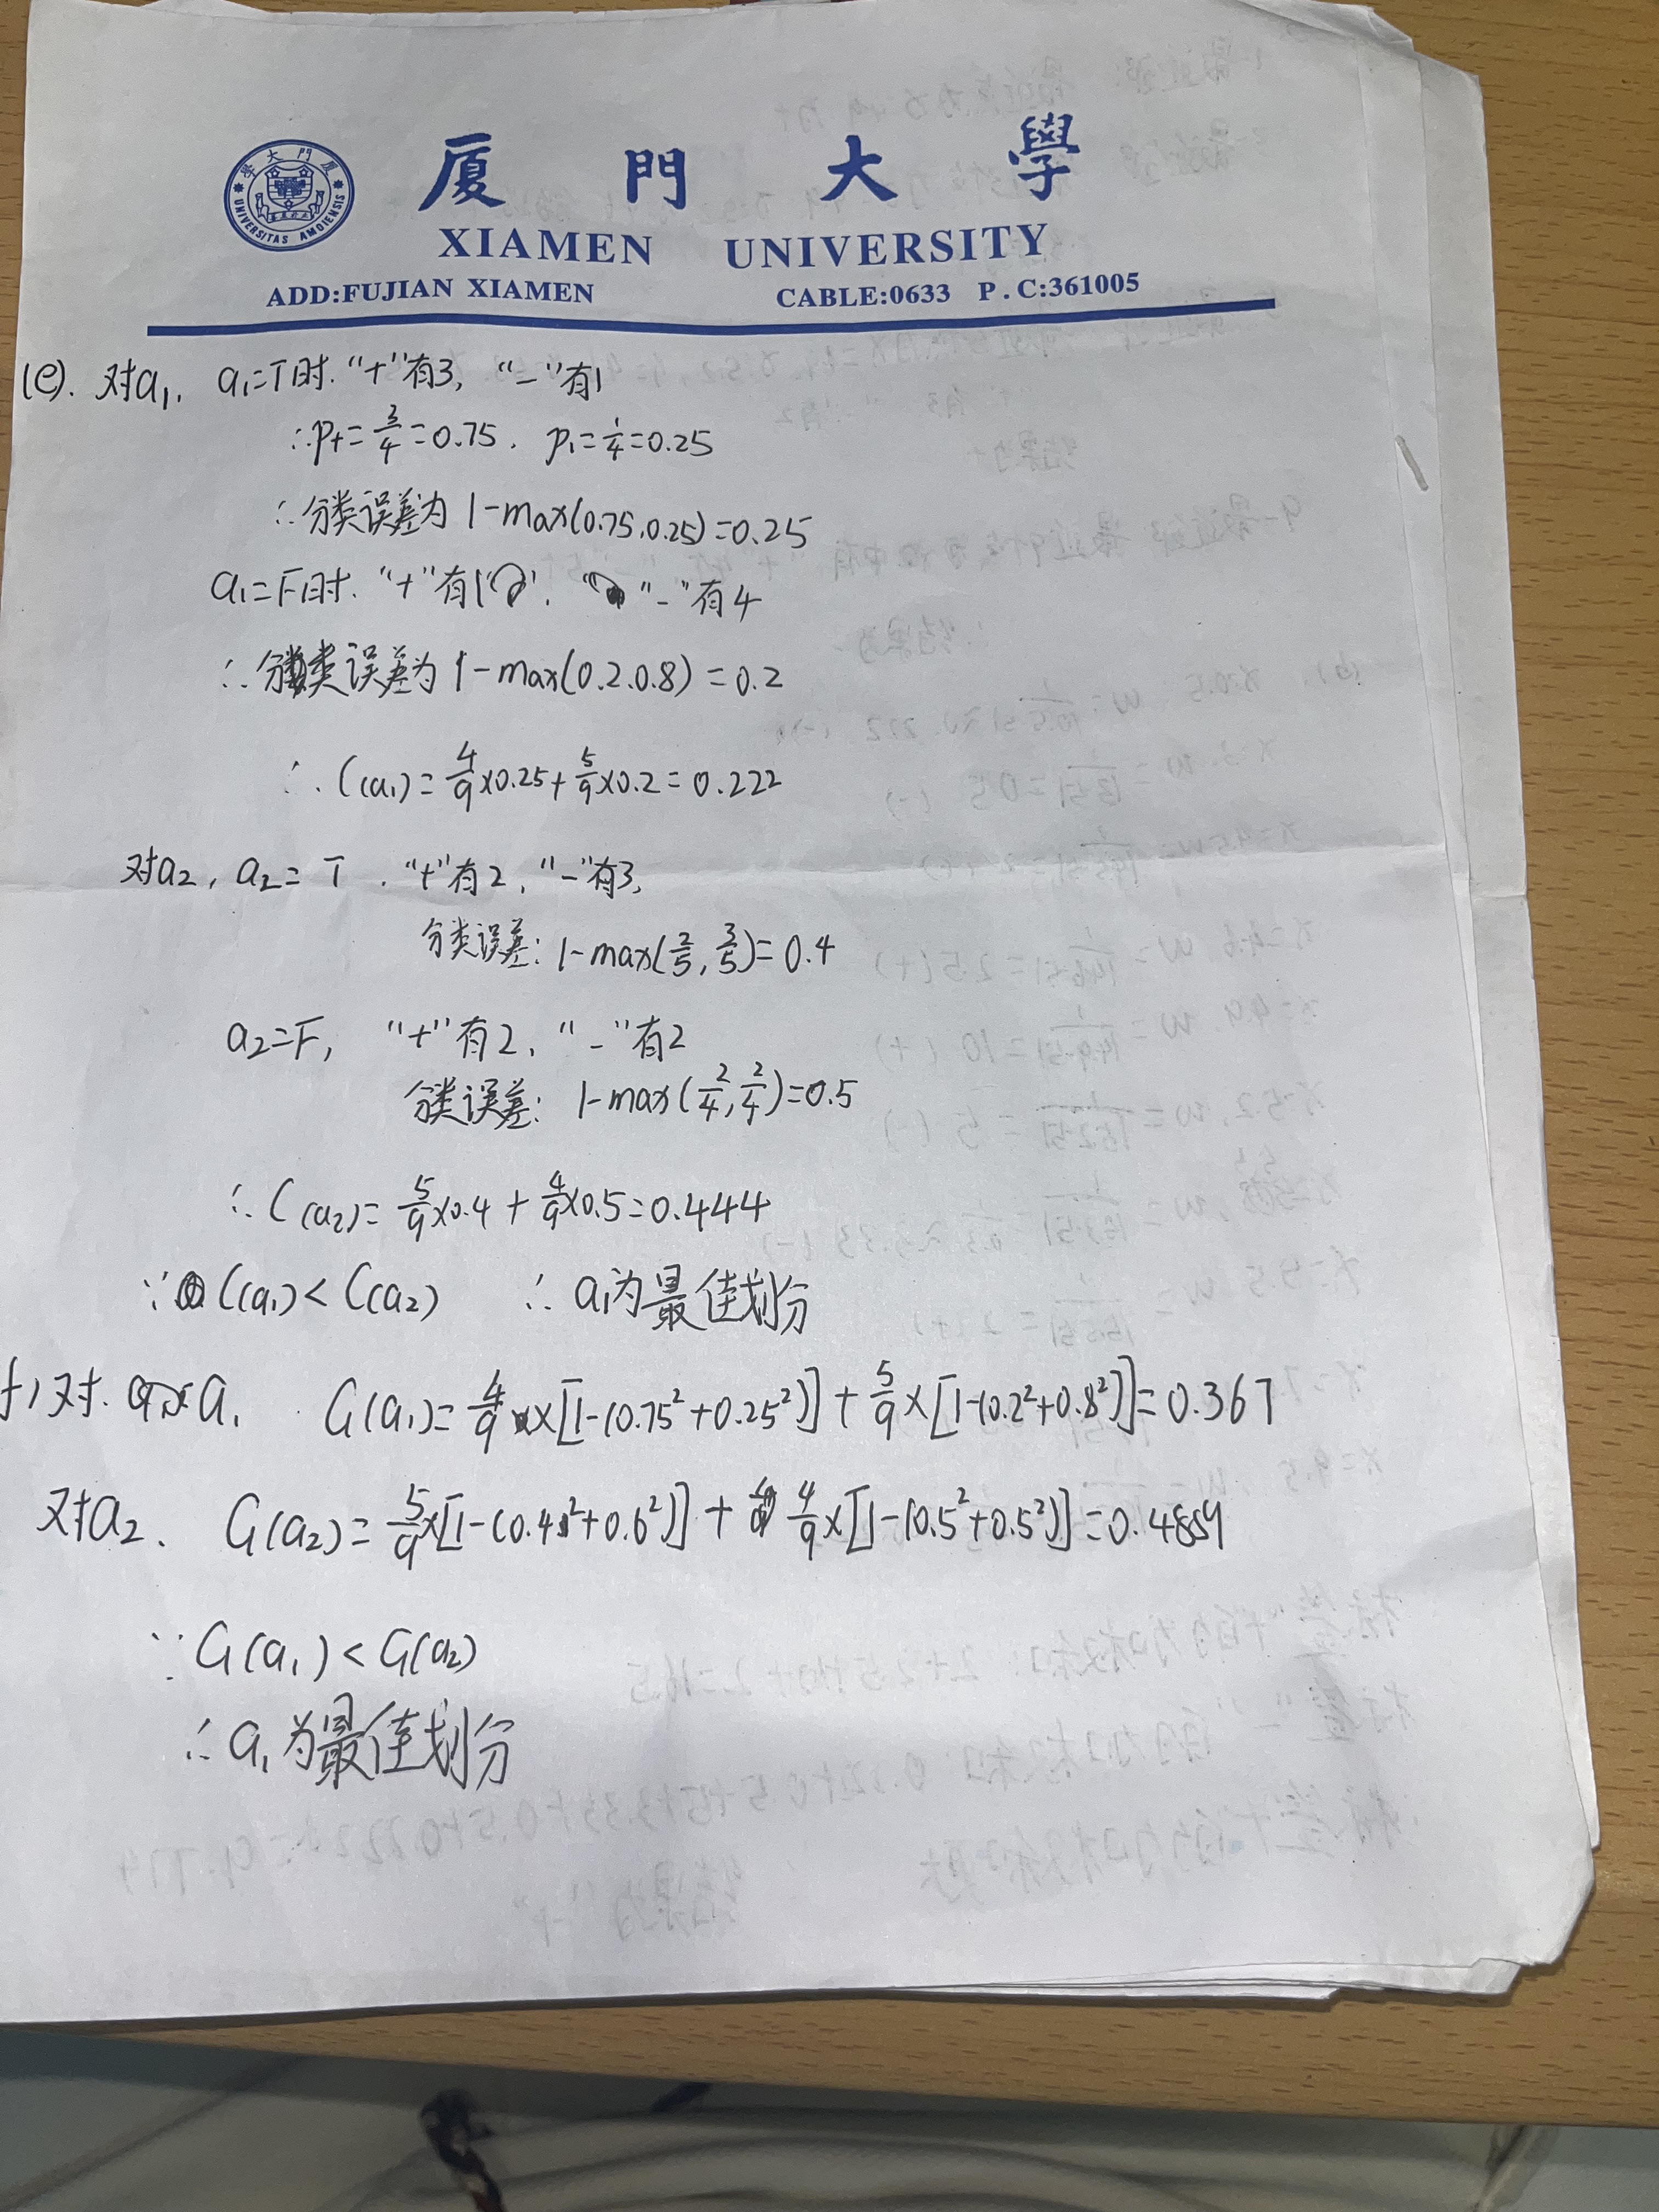 廈門大學
XIAMEN UNIVERSITY
ADD:FUJIAN XIAMEN CABLE:0633 P.C:361005
UNIVERSITAS AMOIENSIS
(e). 对a₁, a₁=T时. “+”有3, “-”有1
∴p+=3/4=0.75, p₁=1/4=0.25
∴分类误差为 1-max(0.75,0.25)=0.25
a₁=F时. “+”有1, “-”有4
∴分类误差为 1-max(0.2,0.8)=0.2
∴C(a₁)=4/9×0.25+5/9×0.2=0.222
对a₂, a₂=T, “+”有2, “-”有3,
分类误差: 1-max(2/5, 3/5)=0.4
a₂=F, “+”有2, “-”有2
分类误差: 1-max(2/4, 2/4)=0.5
∴C(a₂)=5/9×0.4+4/9×0.5=0.444
∵C(a₁)<C(a₂) ∴a₁为最佳划分
f)对a₁ G(a₁)=4/9×[1-(0.75²+0.25²)]+5/9×[1-(0.2²+0.8²)]=0.367
对a₂. G(a₂)=5/9×[1-(0.4²+0.6²)]+4/9×[1-(0.5²+0.5²)]=0.4889
∵G(a₁)<G(a₂)
∴a₁为最佳划分